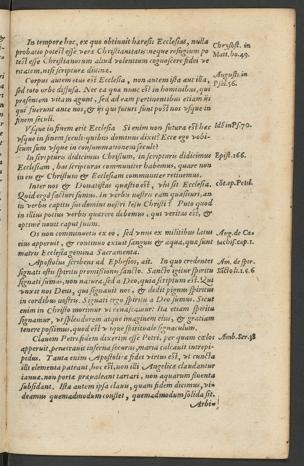 In tempore hoc, ex quo obtinuit hæresis Ecclesias, nulla
probatio potest esse veræ Christianitatis: neque refugium po
test esse Christianorum aliud volentium cognoscere fidei ve
ritatem, nisi scripturæ divinæ.
Chrysost. in
Matt. ho. 49.
Corpus autem eius est Ecclesia, non autem ista aut illa,
sed toto orbe diffusa. Nec ea quæ nunc est in hominibus, qui
præsentem vitam agunt, sed ad eam pertinentibus etiam iis
qui fuerunt ante nos, & iis qui futuri sunt post nos usque in
finem seculi.
Augusti. in
Psal. 56.
Usque in finem erit Ecclesia Si enim non futura est hæc
usque in finem seculi quibus dominus dixit? Ecce ego vobis
cum sum usque in consummationem seculi?
Idē in Ps. 70.
In scripturis didicimus Christum, in scripturis didicimus
Ecclesiam, has scripturas communiter habemus, quare non
in eis & Christum & Ecclesiam communiter retinemus.
Epist. 166.
Inter nos & Donatistas quæstio est, ubi sit Ecclesia.
Quid ergo facturi sumus, in verbis nostris eam quæsituri, an
in verbis capitis sui domini nostri Iesu Christi? Puto quod
in illius potius verbis quærere debemus, qui veritas est, &
optime novit corpus suum.
cōt. ep. Petil.
Os non comminuetis ex eo, sed unus ex militibus latus
eius apperuit, & continuo exivit sanguis & aqua, quæ sunt
matris Ecclesiæ gemina Sacramenta.
Aug. de Ca-
techis. cap. 1.
Apostolus scribens ad Ephesios, ait. In quo credentes
signati estis spiritu promissionis sancto. Sancto igitur spiritu
signati sumus, non natura, sed a Deo, quia scriptum est. Qui
unxit nos Deus, qui signavit nos, & dedit pignus spiritus
in cordibus nostris. Signati ergo spiritu a Deo sumus. Sicut
enim in Christo morimur ut renascamur: Ita etiam spiritu
signamur, ut splendorem atque imaginem eius, & gratiam
tenere possimus, quod est utique spirituale signaculum.
Am. de spir.
Sācto li. 1. c. 6
Clavem Petri fidem dixerim esse Petri, per quam cælos
apperuit, penetravit inferna securus, maria calcavit intrepi-
pidus. Tanta enim Apostolicæ fidei virtus est, ut cuncta
illi elementa pateant, hoc est, non illi Angelicæ claudantur
ianuæ, non portæ prævaleant tartari, non aquarum fluenta
subsidant. Ista autem ipsa clavis, quam fidem dicimus, vi-
deamus quemadmodum constet, quemadmodum solida sit.
Amb. Ser. 38
Arbi-